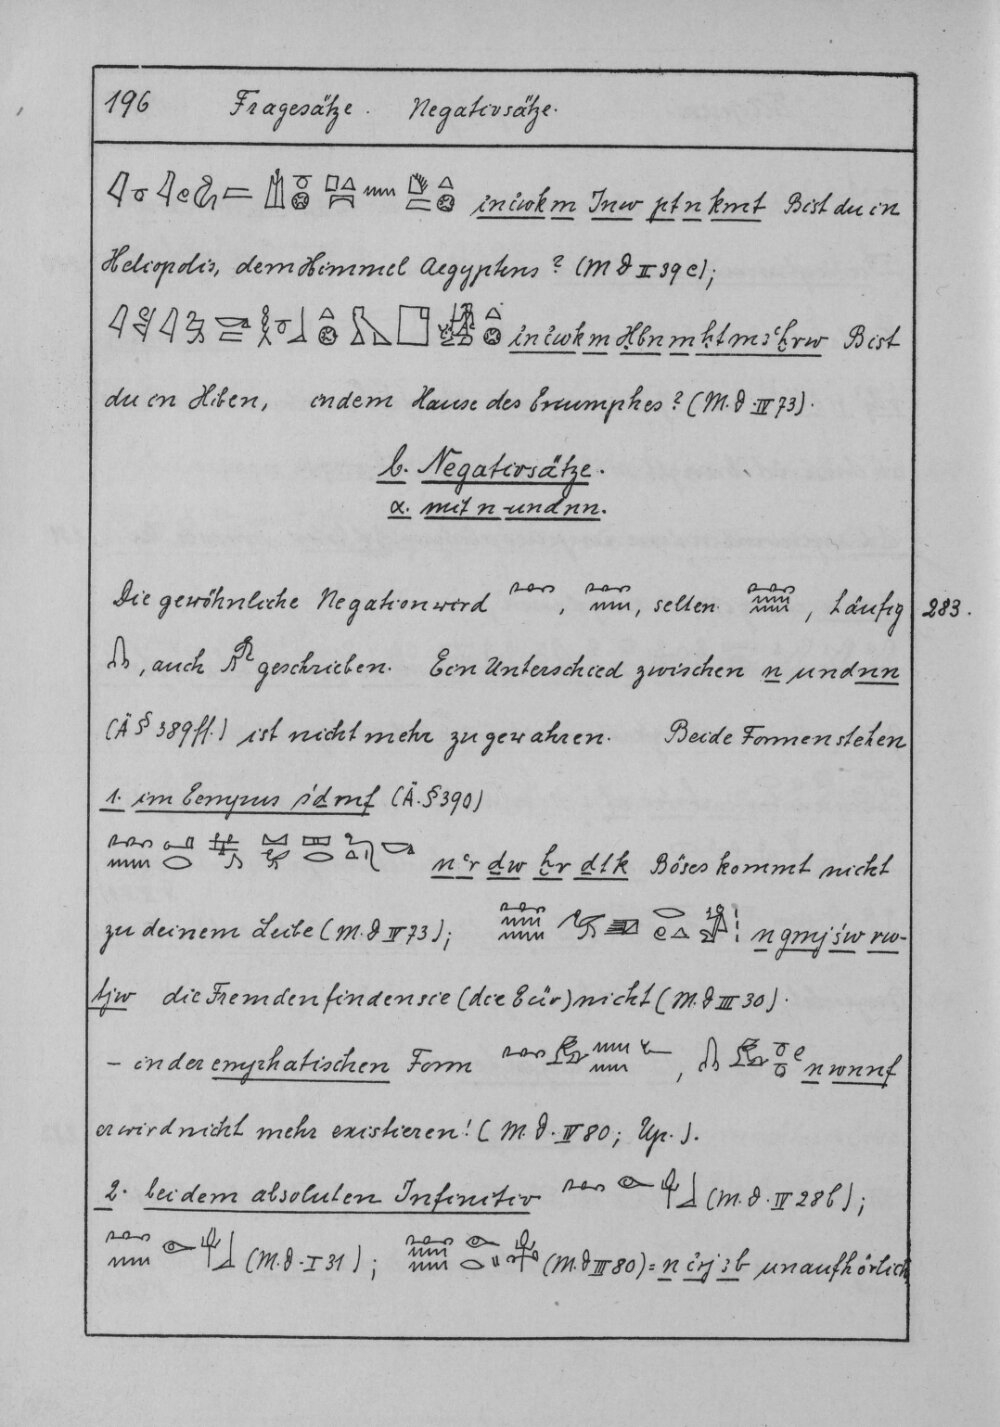 196 Fragesätze. Negativsätze.
in iwk m Inw pt n kmt Bist du in
Heliopolis, dem Himmel Aegyptens? (M D II 39 e);
in iwk m Ḥbn m ḥt mꜣꜥ ḫrw Bist
du in Hiben, in dem Hause des Triumphes? (M. D. IV 73).
b. Negativsätze.
α. mit n und nn.
Die gewöhnliche Negation wird , , selten , häufig 283.
, auch geschrieben. Ein Unterschied zwischen n und nn
(Ä § 389 ff.) ist nicht mehr zu gewahren. Beide Formen stehen
1. im Tempus śḏmf (Ä. § 390)
n ꜥr ḏw ḫr ḏtk Böses kommt nicht
zu deinem Leibe (M. D IV 73); n gmj św rw-
tjw die Fremden finden sie (die Tür) nicht (M. D III 30).
– in der emphatischen Form , n wnnf
er wird nicht mehr existieren! (M. D. IV 80; Up.).
2. bei dem absoluten Infinitiv (M. D. IV 28 b);
(M. D. I 31); (M. D III 80) = n irj ꜣb unaufhörlich